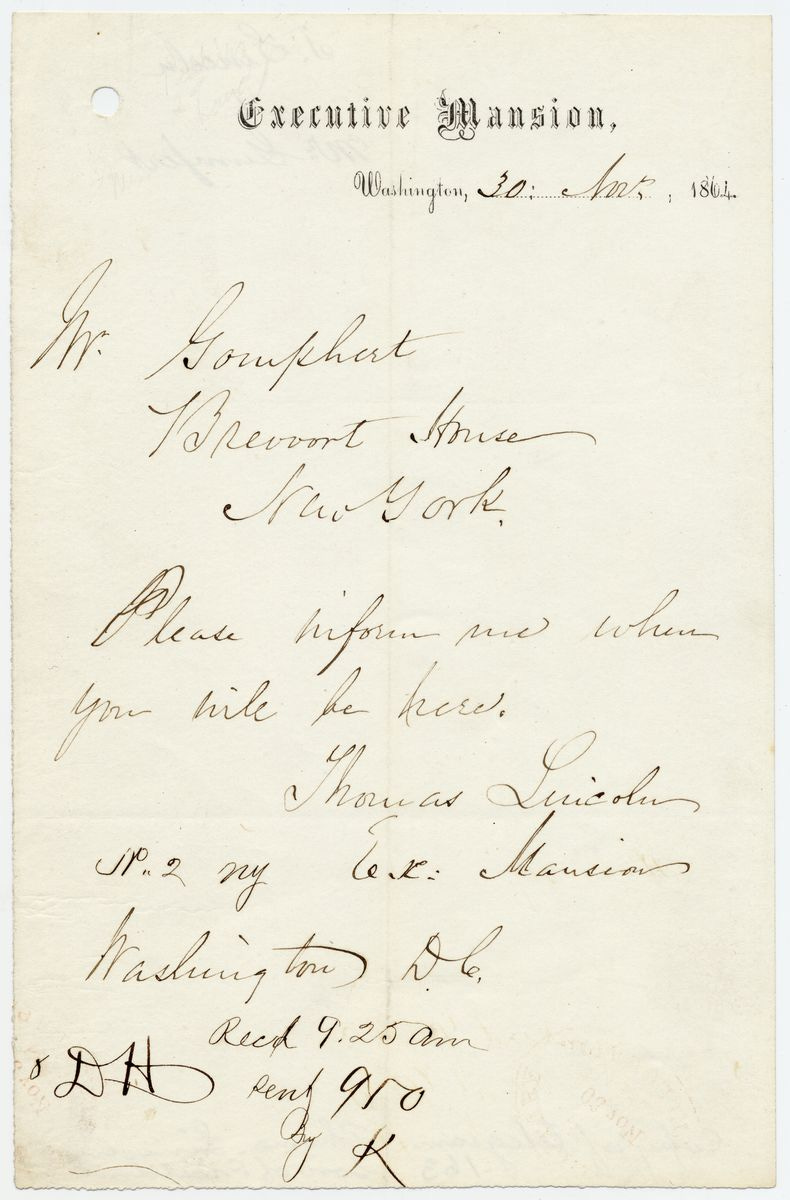 Executive Mansion,
Washington, 30: Novr, 1864.
Mr. Gomphert
Brevoort House
New York.
Please inform me when
you will be here.
Thomas Lincoln
No. 2 ny Ex: Mansion
Washington D.C.
Recd 9.25 am
DH sent 950
By K